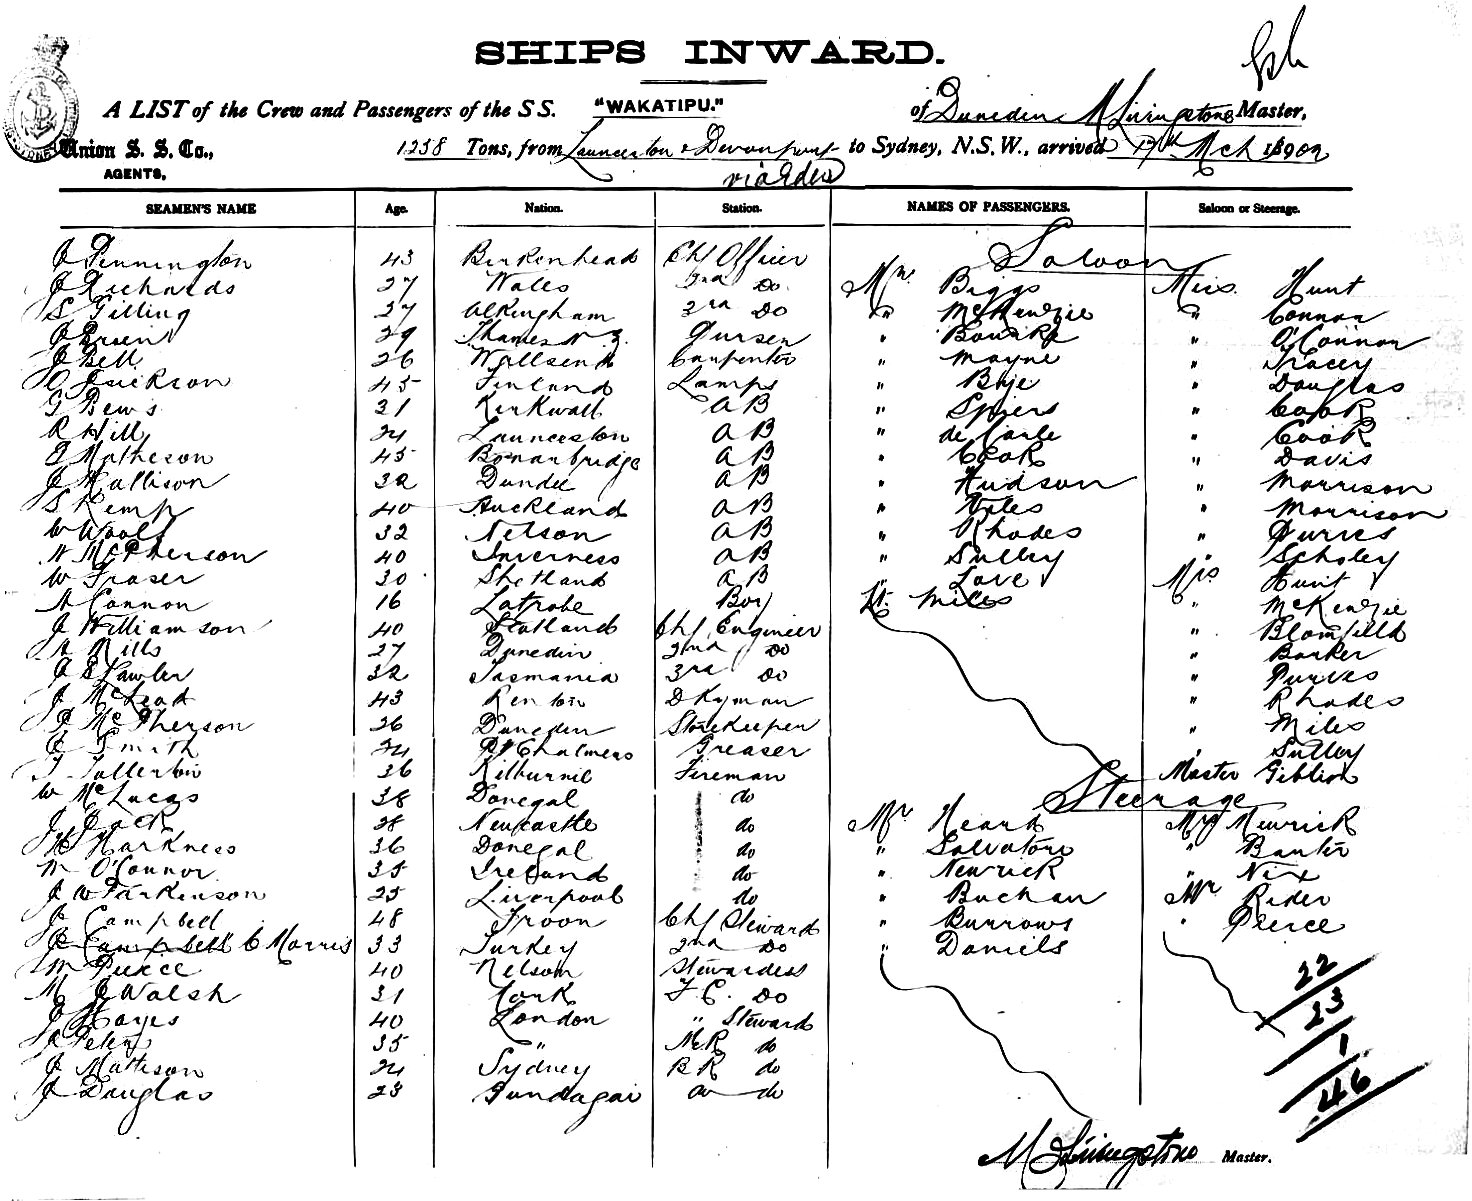 SHIPS INWARD.
A LIST of the Crew and Passengers of the S S. "WAKATIPU." of Dunedin M Livingstone Master,
Union S. S. Co., 1258 Tons, from Launceston & Devonport to Sydney, N.S.W., arrived 17th Mch 1902
AGENTS, via Eden
SEAMEN'S NAME Age. Nation. Station. NAMES OF PASSENGERS. Saloon or Steerage.
Saloon
J Pennington 43 Birkenhead Chf Officer
J Richards 27 Wales 2nd Do. Mr. Biggs Miss. Hunt
S Gilling 27 Wokingham 3rd Do " McKenzie " Connor
29 Thames N Z. Purser " Bourke " O'Connor
J Bell 26 Wallsend Carpenter " Mayne " Tracey
O Erickson 45 Finland Lamps " Bye " Douglas
G Bews 31 Kirkwall A B " Spiers " Cook
R Hill 24 Launceston A B " de Carle " Cook
D Matheson 45 Bonarbridge A B " Cook " Davis
J Mallison 32 Dundee A B " Hudson " Morrison
S Kemp 40 Auckland A B " Niles " Morrison
W Woolf 32 Nelson A B " Rhodes " Purves
N McPherson 40 Inverness A B " Sulley " Scholey
W Fraser 30 Shetland A B " Love Mrs Hunt
A Connon 16 Latrobe Boy Lt. Miles " McKenzie
J Williamson 40 Scotland Chf Engineer " Blomfield
A Mills 27 Dunedin 2nd Do " Barker
J S Lawler 32 Tasmania 3rd Do " Purves
J McLeod 43 Renton Dkyman " Rhodes
D McPherson 26 Dunedin Storekeeper " Miles
C Smith 24 Pt Chalmers Greaser " Sulley
T Fullerton 36 Kilburnie Fireman Master Giblin
W McLucas 38 Donegal do Steerage
J Jack 28 Newcastle do Mr Heard Mrs Newrick
H Harkness 36 Donegal do " Salvatore " Banter
M O'Connor 35 Ireland do " Newrick " Nix
J W Parkinson 25 Liverpool do " Buchan Mr Rider
J Campbell 48 Troon Chf Steward " Burrows " Pierce
J Campbell C Morris 33 Turkey 2nd Do " Daniels
M Pierce 40 Nelson Stewardess
M J Walsh 31 York F. C. Do
J Hayes 40 London " Steward
35 " M.R do
J Mattison 24 Sydney B R do
J Douglas 23 Gundagai do
22
23
1
46
M Livingstone Master.